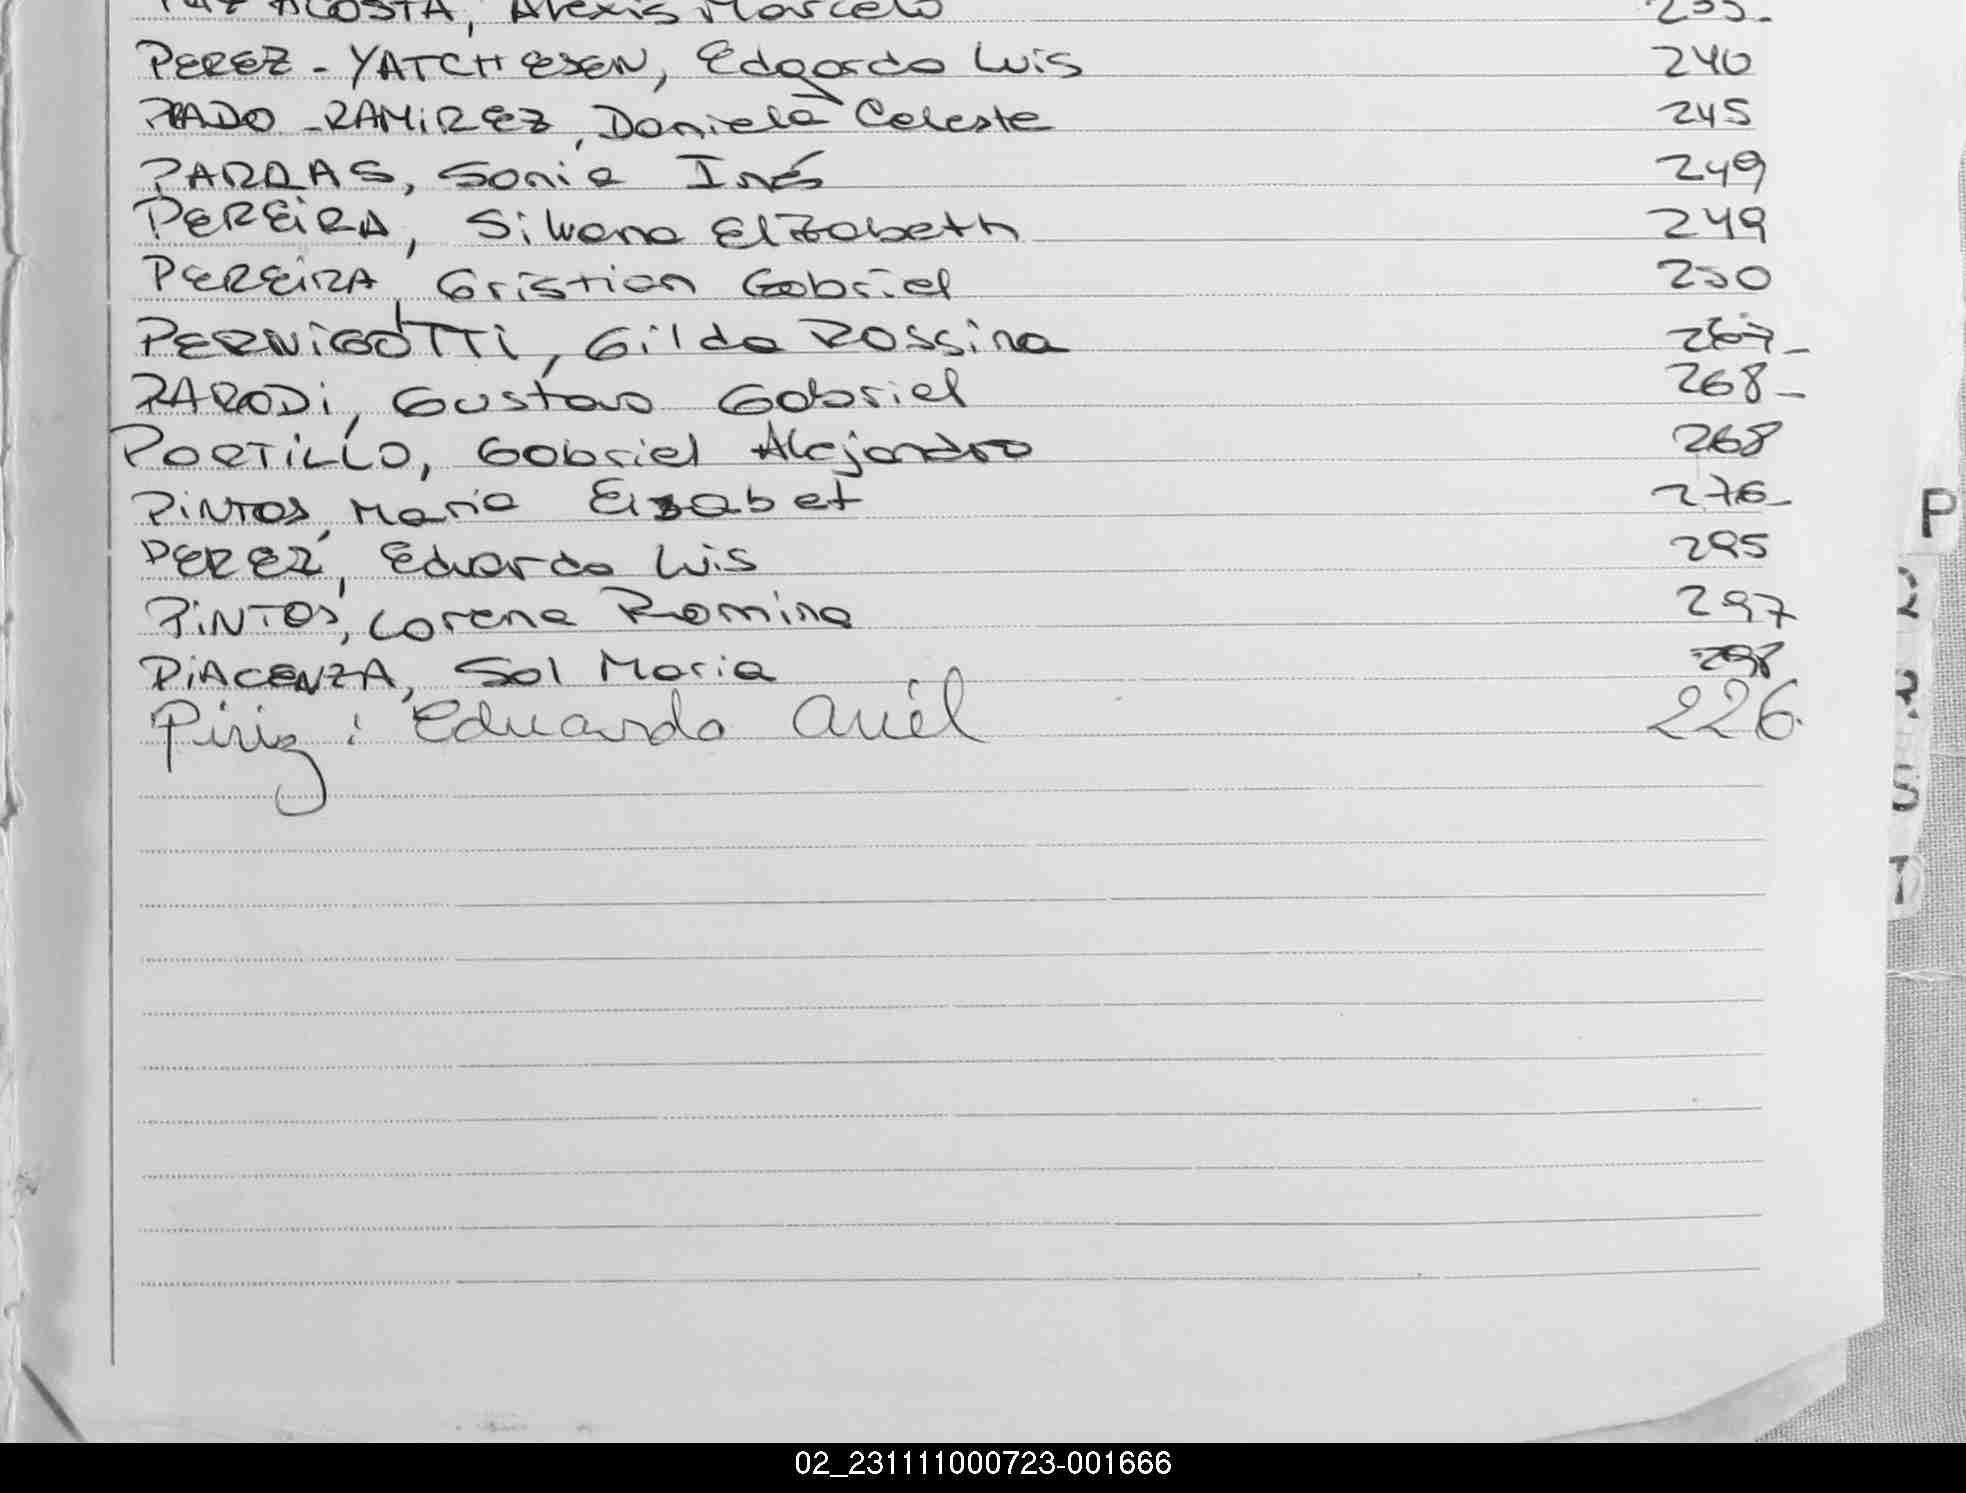 ACOSTA, Alexis Marcelo 235-
PEREZ - YATCHESEN, Edgardo Luis 240
PRADO - RAMIREZ, Daniela Celeste 245
PARRAS, Sonia Inés 249
PEREIRA, Silvana Elizabeth 249
PEREIRA, Cristian Gabriel 250
PERNIGOTTI, Gilda Rossina 267-
PARODI, Gustavo Gabriel 268-
PORTILLO, Gabriel Alejandro 268
PINTOS, Maria Elizabet 276-
PEREZ, Eduardo Luis 295
PINTOS, Lorena Romina 297
PIACENZA, Sol Maria 298
Piriz : Eduardo Ariel 226.
P
R
S
T
02_231111000723-001666